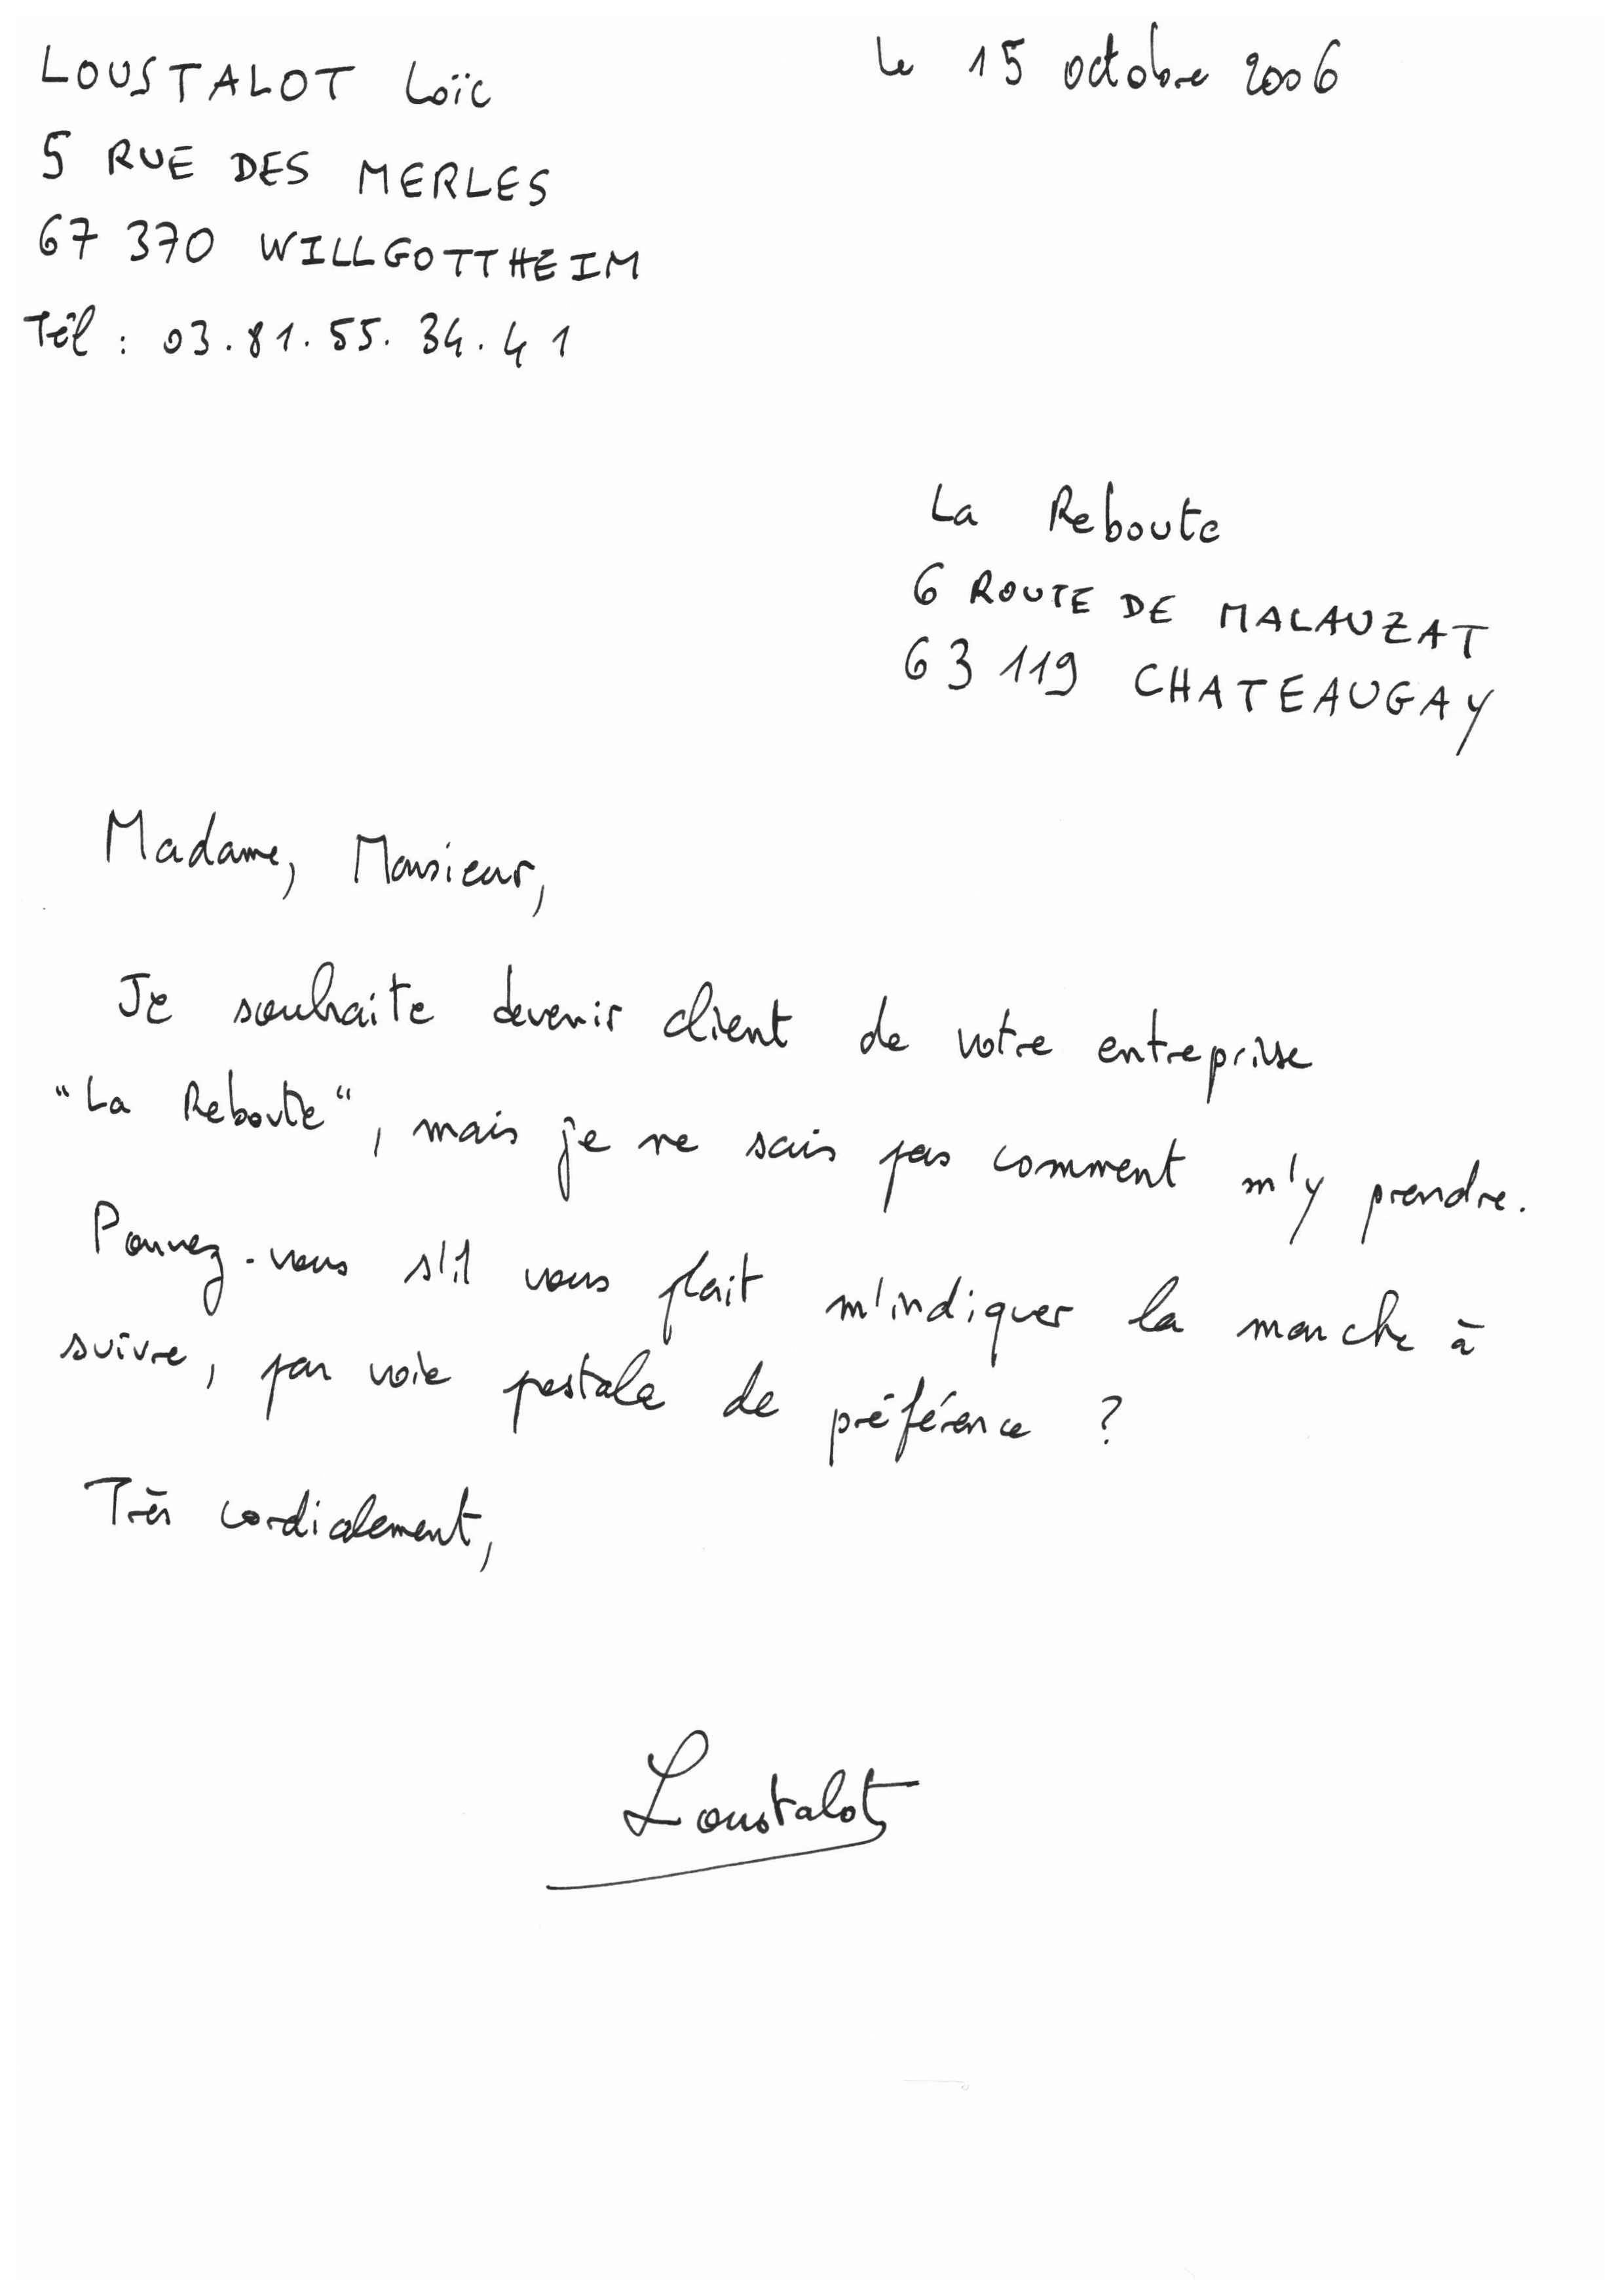 LOUSTALOT Loïc
le 15 octobre 2006
5 RUE DES MERLES
67 370 WILLGOTTHEIM
Tél : 03.81.55.34.41
La Reboute
6 ROUTE DE MALAUZAT
63 119 CHATEAUGAY
Madame, Monsieur,
Je souhaite devenir client de votre entreprise
"La Reboute", mais je ne sais pas comment m'y prendre.
Pouvez-vous s'il vous plait m'indiquer la marche à
suivre, par voie postale de préférence ?
Très cordialement,
Loustalot